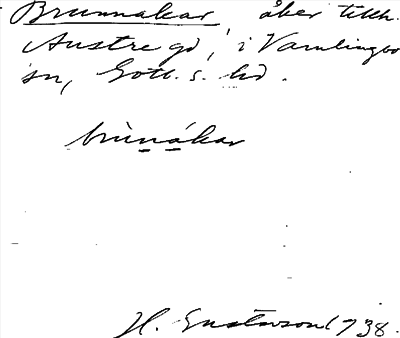 Brunnakar, åker tillh.
Austre gd, i Vamlingbo
sn, Gotl. s. hd.
brùnákar
H. Gustavson 1738.